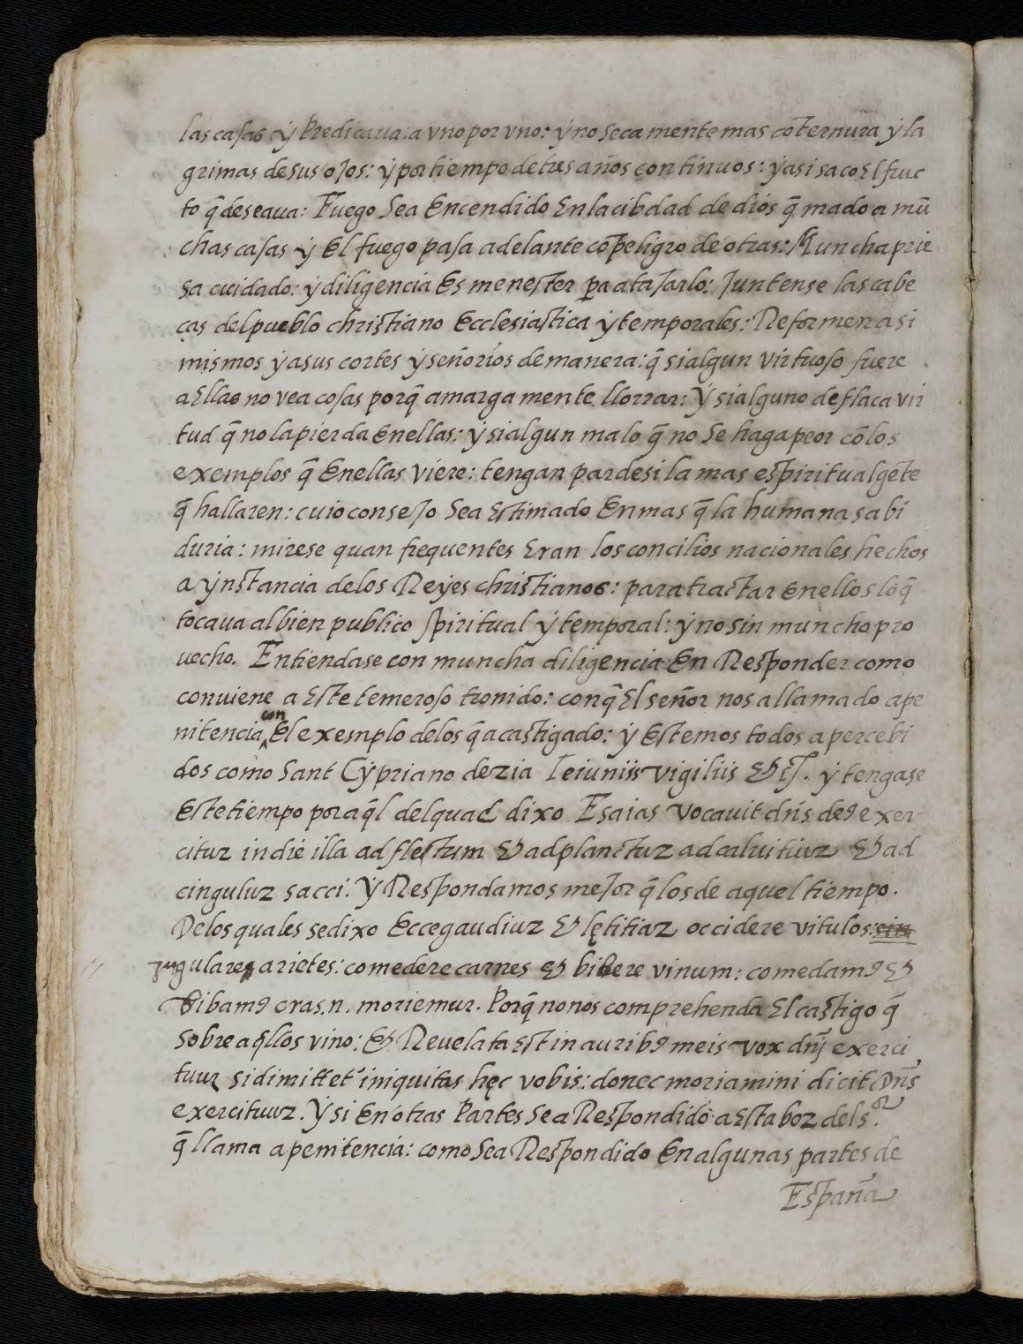 las casas ÿ Predicaua: a vno por vno: ÿ no seca mente mas cõ ternura ÿ la
grimas de sus ojos: ÿ por tiempo de tres años continuos: ÿ asi saco El fruc
to q̃ deseaua: Fuego Sea Encendido En la cibdad de dios q̃ mado a mũ
chas casas ÿ El fuego pasa adelante cõ peligro de otras: Muncha prie
sa cuidado: ÿ diligencia Es menester para atajarlo: Juntense las cabe
ças del pueblo christiano Ecclesiastica ÿ temporales: Reformen a si
mismos ÿ a sus cortes ÿ señorios de manera: q̃ si algun virtuoso fuere
a Ellas no vea cosas porq̃ amarga mente llorrar: Ÿ si alguno de flaca vir
tud q̃ no la pierda En ellas: ÿ si algun malo q̃ no Se haga peor cõ los
exemplos q̃ En ellas viere: tengan par de si la mas espiritual gẽte
q̃ hallaren: cuio consejo Sea Estimado En mas q̃ la humana sabi
duria: mirese quan frequentes Eran los concilios nacionales hechos
a ÿnstancia de los Reÿes christianos: para tractar En ellos lo q̃
tocaua al bien publico spiritual ÿ temporal: ÿ no sin muncho pro
uecho. Entiendase con muncha diligencia En Responder como
conuiene a Este temeroso tronido: con q̃ El señor nos a llamado a pe
nitencia con El exemplo de los q̃ a castigado: ÿ Estemos todos apercebi
dos como Sant Cÿpriano dezia Ieiuniis vigiliis & cẽt. ÿ tengase
Este tiempo por aq̃l del qual dixo Esaias vocauit dñs deꝰ exer
cituz in die illa ad fletum & ad planctuz ad caluitiuz & ad
cinguluz sacci. Ÿ Respondamos mejor q̃ los de aquel tiempo.
De los quales se dixo Ecce gaudiuz & lętitiaz occidere vitulos:
jugulare arietes: comedere carnes & bibere vinum: comedamꝰ &
bibamꝰ cras .n. moriemur. Porq̃ no nos comprehenda El castigo q̃
sobre aq̃llos vino: & Reuelata Est in auribꝰ meis vox dnj̃ exerci
tuuz si dimittet iniquitas hęc vobis: donec moriamini dicit Dñs
exercituuz. Ÿ si En otras Partes Se a Respondido a Esta boz del s.or
q̃ llama a penitencia: como Se a Respondido En algunas partes de
España